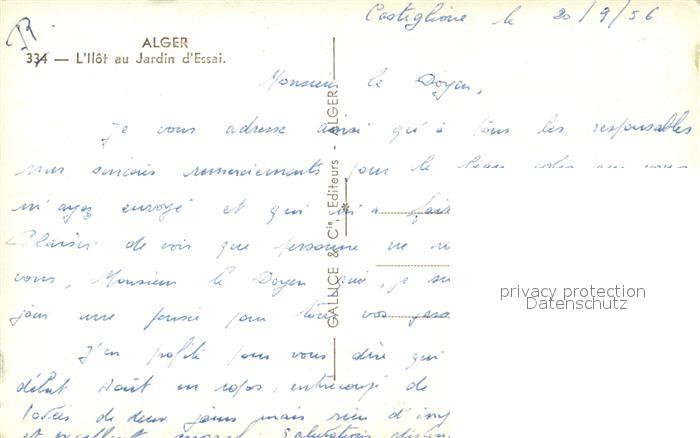 Castiglione le 20/9/56
ALGER
334 — L'Ilôt au Jardin d'Essai.
Monsieur le Doyen,
Je vous adresse ainsi qu'à tous les responsables
mes sincères remerciements pour le beau colis
m'ayez envoyé et qui m'a fait
Plaisir de voir que personne ne
vous, Monsieur le Doyen je
une pensée pour tous vos
J'en profite pour vous dire qui
début Août en repos, entrecoupé de
de deux jours mais rien d'
et excellent moral. Salutations
GALLICE & Cie, Editeurs - ALGERS
privacy protection
Datenschutz